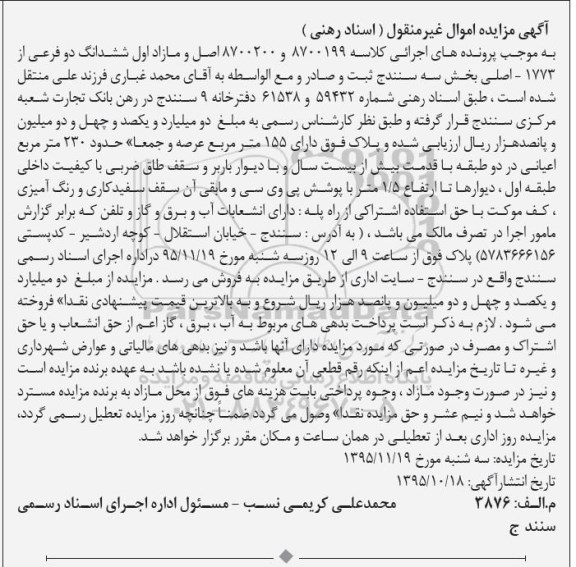 آگهی مزایده اموال غیرمنقول ( اسناد رهنی )
به موجب پرونده های اجرائی کلاسه ۸۷۰۰۱۹۹ و ۸۷۰۰۲۰۰ اصل و مازاد اول ششدانگ دو فرعی از
۱۷۷۳ - اصلی بخش سه سنندج ثبت و صادر و مع الواسطه به آقای محمد غباری فرزند علی منتقل
شده است ، طبق اسناد رهنی شماره ۵۹۴۳۲ و ۶۱۵۳۸ دفترخانه ۹ سنندج در رهن بانک تجارت شعبه
مرکزی سنندج قرار گرفته و طبق نظر کارشناس رسمی به مبلغ دو میلیارد و یکصد و چهل و دو میلیون
و پانصدهزار ریال ارزیابی شده و پلاک فوق دارای ۱۵۵ متر مربع عرصه و جمعا» حدود ۲۳۰ متر مربع
اعیانی در دو طبقه با قدمت بیش از بیست سال و با دیوار باربر و سقف طاق ضربی با کیفیت داخلی
طبقه اول ، دیوارها تا ارتفاع ۱/۵ متر با پوشش پی وی سی و مابقی آن سقف سفیدکاری و رنگ آمیزی
، کف موکت با حق استفاده اشتراکی از راه پله : دارای انشعابات آب و برق و گاز و تلفن که برابر گزارش
مامور اجرا در تصرف مالک می باشد ، ( به آدرس : سنندج - خیابان استقلال - کوچه اردشیر - کدپستی
۵۷۸۳۶۶۶۱۵۶) پلاک فوق از ساعت ۹ الی ۱۲ روزسه شنبه مورخ ۹۵/۱۱/۱۹ دراداره اجرای اسناد رسمی
سنندج واقع در سنندج - سایت اداری از طریق مزایده به فروش می رسد . مزایده از مبلغ دو میلیارد
و یکصد و چهل و دو میلیون و پانصد هزار ریال شروع و به بالاترین قیمت پیشنهادی نقدا» فروخته
می شود . لازم به ذکر است پرداخت بدهی های مربوط به آب ، برق ، گاز اعم از حق انشعاب و یا حق
اشتراک و مصرف در صورتی که مورد مزایده دارای آنها باشد و نیز بدهی های مالیاتی و عوارض شهرداری
و غیره تا تاریخ مزایده اعم از اینکه رقم قطعی آن معلوم شده یا نشده باشد به عهده برنده مزایده است
و نیز در صورت وجود مازاد ، وجوه پرداختی بابت هزینه های فوق از محل مازاد به برنده مزایده مسترد
خواهد شد و نیم عشر و حق مزایده نقدا» وصول می گردد ضمنا چنانچه روز مزایده تعطیل رسمی گردد،
مزایده روز اداری بعد از تعطیلی در همان ساعت و مکان مقرر برگزار خواهد شد.
تاریخ مزایده: سه شنبه مورخ ۱۳۹۵/۱۱/۱۹
تاریخ انتشارآگهی: ۱۳۹۵/۱۰/۱۸
م.الف: ۳۸۷۶ محمدعلی کریمی نسب - مسئول اداره اجرای اسناد رسمی
سنندج